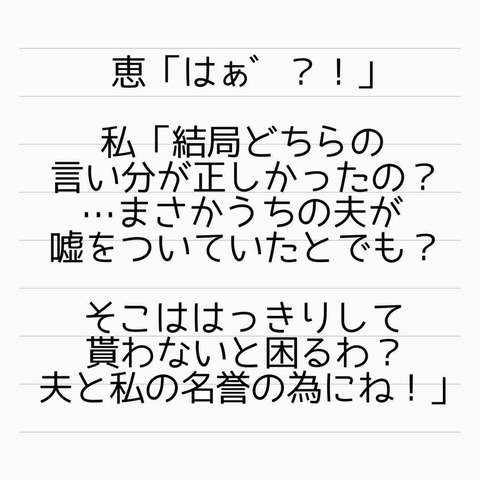 恵「はぁ゛？！」
私「結局どちらの
言い分が正しかったの？
…まさかうちの夫が
嘘をついていたとでも？
そこははっきりして
貰わないと困るわ？
夫と私の名誉の為にね！」